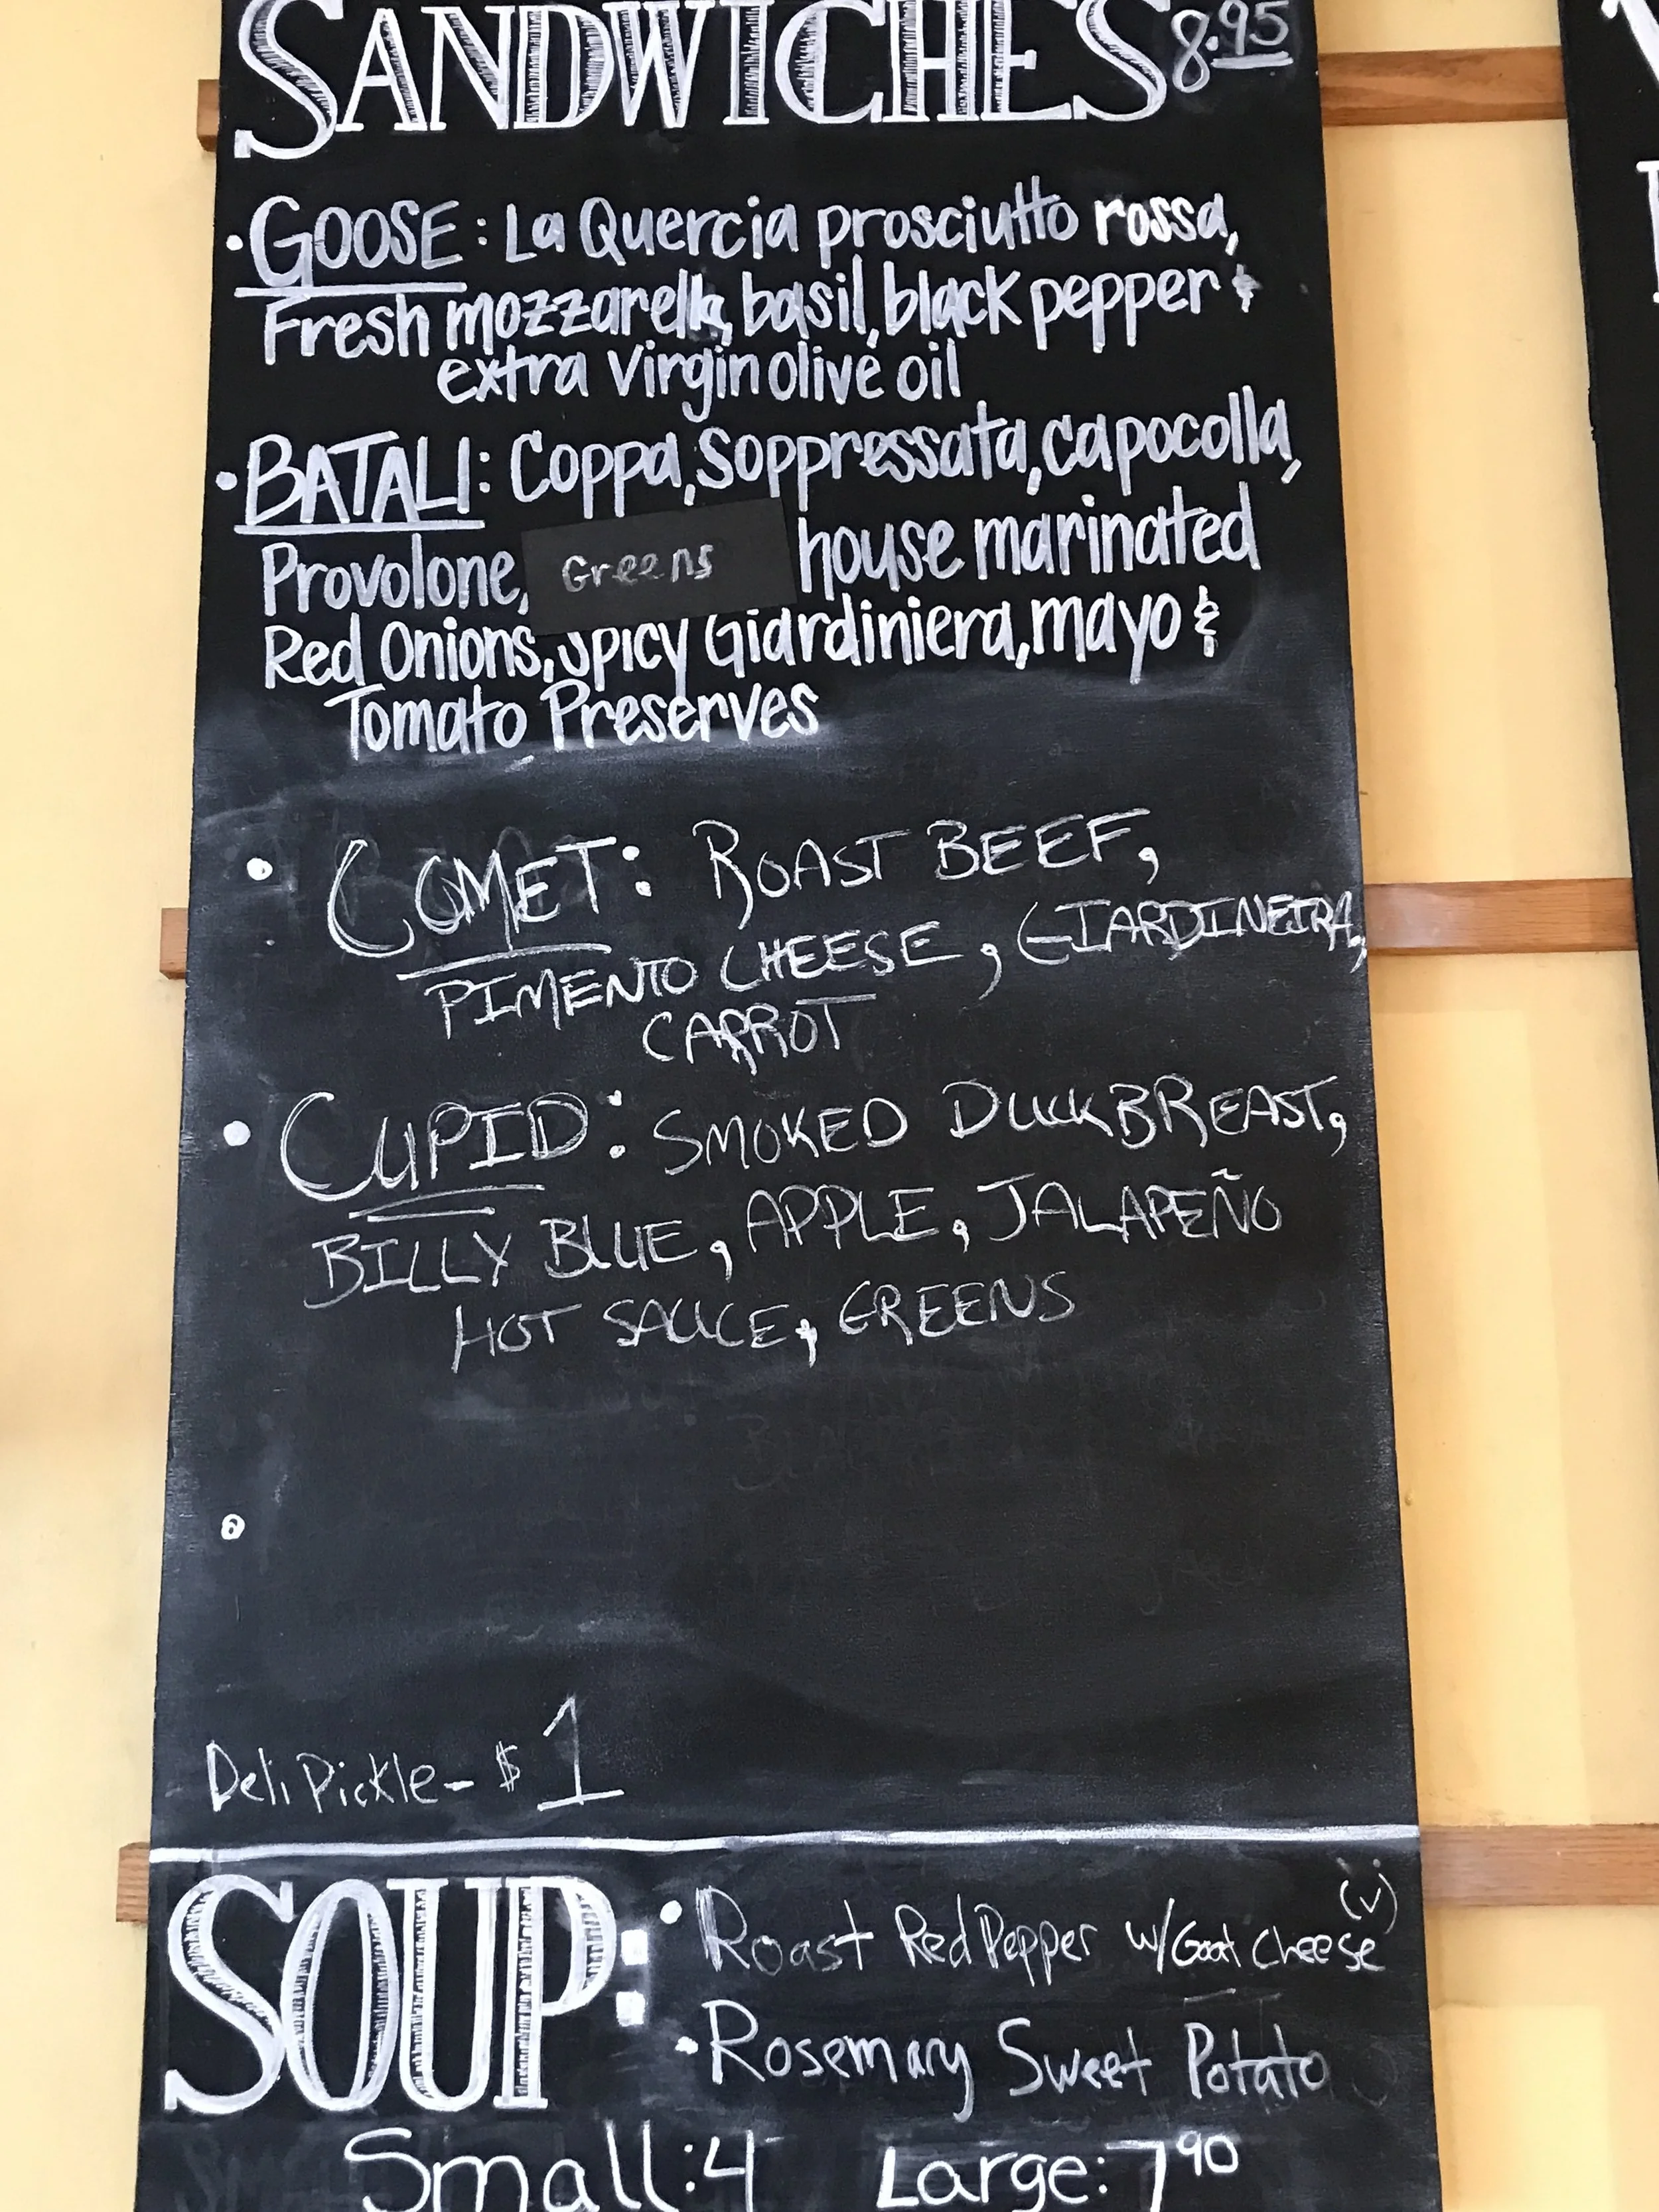 SANDWICHES 8.95
• GOOSE: La Quercia prosciutto rossa,
Fresh mozzarella, basil, black pepper &
extra virgin olive oil
• BATALI: Coppa, Soppressata, capocolla,
Provolone, Greens house marinated
Red Onions, Spicy Giardiniera, mayo &
Tomato Preserves
• COMET: ROAST BEEF,
PIMENTO CHEESE, GIARDINEIRA,
CARROT
• CUPID: SMOKED DUCK BREAST,
BILLY BLUE, APPLE, JALAPEÑO
HOT SAUCE, GREENS
•
Deli Pickle - $1
SOUP: • Roast Red Pepper w/ Goat Cheese (v)
• Rosemary Sweet Potato
Small: 4 Large: 7 90